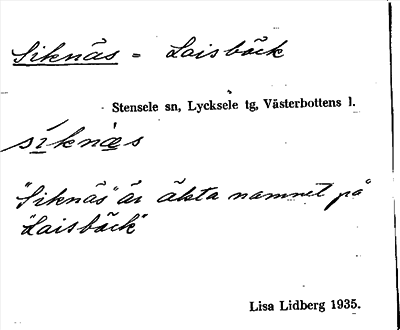 Siknäs = Laisbäck
Stensele sn, Lycksele tg, Västerbottens l.
sìknæ̀s
"Siknäs" är äkta namnet på
"Laisbäck"
Lisa Lidberg 1935.